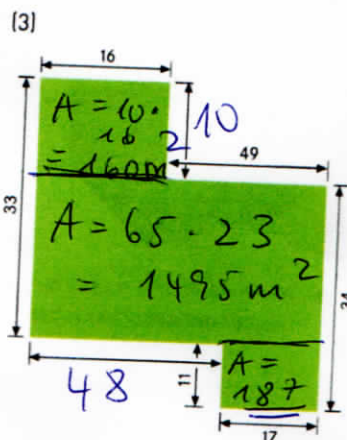 (3)
16
A = 10 ·
16
= 160m²
10
49
33
A = 65 · 23
= 1495 m²
34
48
11
A =
187
17